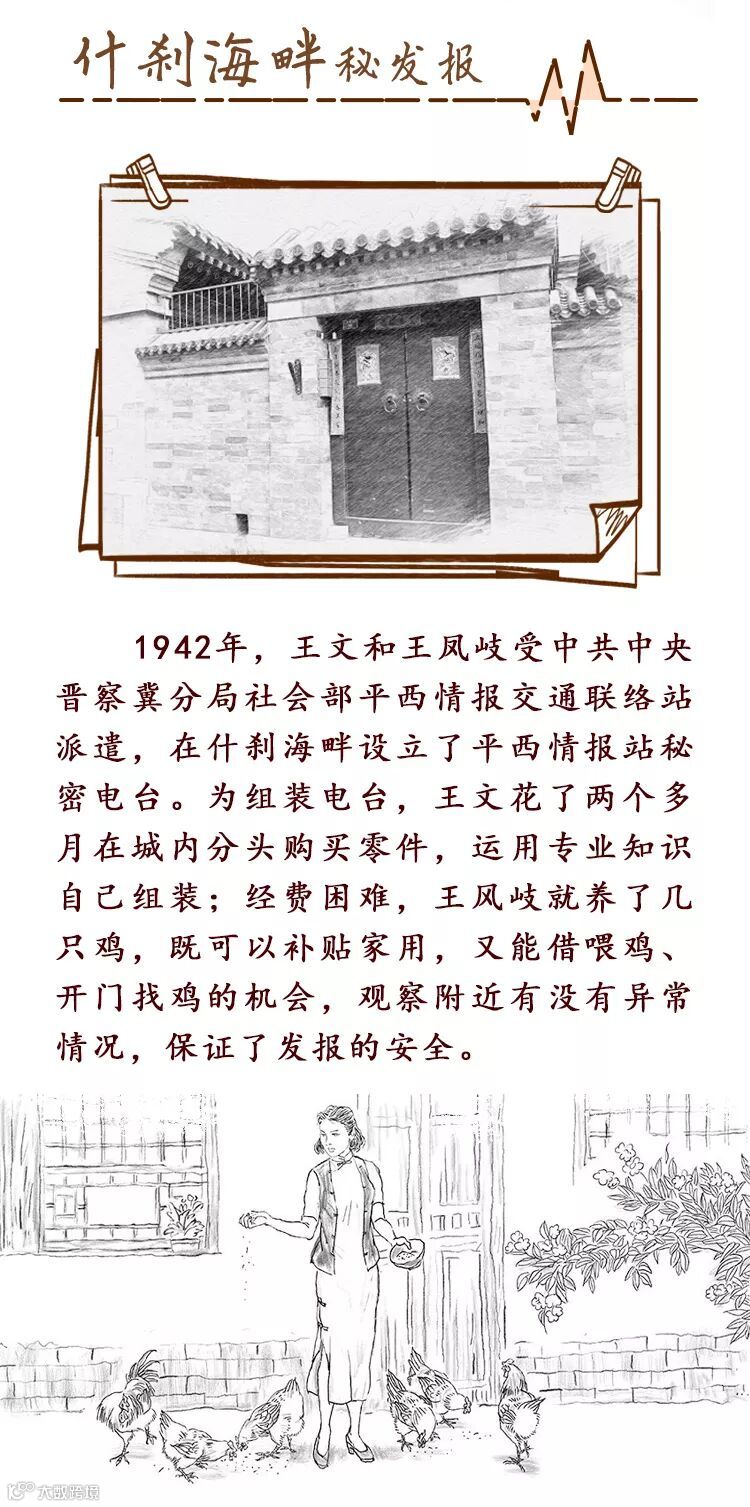 什刹海畔秘发报
1942年，王文和王凤岐受中共中央
晋察冀分局社会部平西情报交通联络站
派遣，在什刹海畔设立了平西情报站秘
密电台。为组装电台，王文花了两个多
月在城内分头购买零件，运用专业知识
自己组装；经费困难，王风岐就养了几
只鸡，既可以补贴家用，又能借喂鸡、
开门找鸡的机会，观察附近有没有异常
情况，保证了发报的安全。
大数跨境